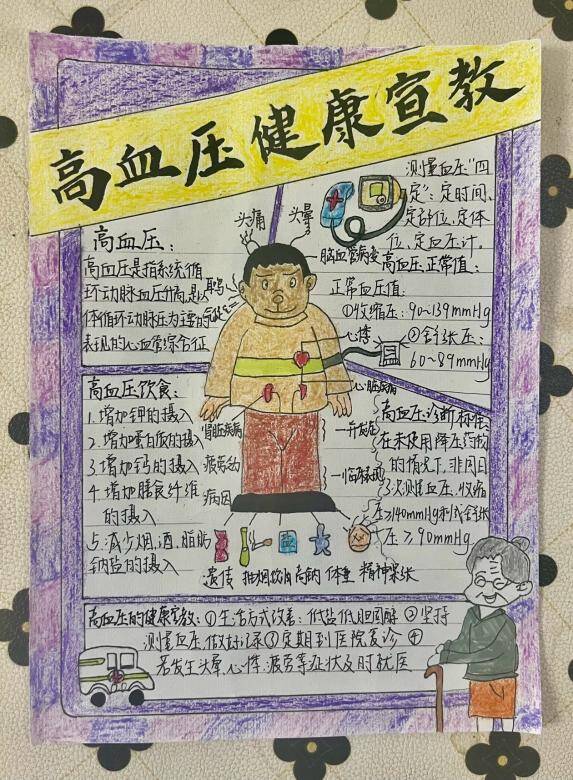 高血压健康宣教
测量血压"四
定":定时间、
定部位、定体
位、定血压计。
高血压正常值:
正常血压值:
①收缩压:90~139mmHg
②舒张压:
60~89mmHg
高血压:
高血压是指系统循
环动脉血压升高,是以
体循环动脉压为主要的
表现的心血管综合征
头痛
头晕
耳鸣
脑血管病变
心悸
心脏疾病
肾脏疾病
疲劳动
病因
并发症
临床表现
高血压饮食:
1.增加钾的摄入
2.增加蛋白质的摄入
3.增加钙的摄入
4.增加膳食纤维
的摄入
5.减少烟、酒、脂肪
钠盐的摄入
高血压诊断标准:
在未使用降压药物
的情况下,非同日
3次测量血压,收缩
压≥140mmHg和/或舒张
压≥90mmHg
遗传 抽烟饮酒 高钠 体重 精神紧张
高血压的健康宣教:①生活方式改善:低盐低胆固醇 ②坚持
测量血压,做好记录③定期到医院复诊 ④
若发生头晕、心悸、疲劳等症状及时就医